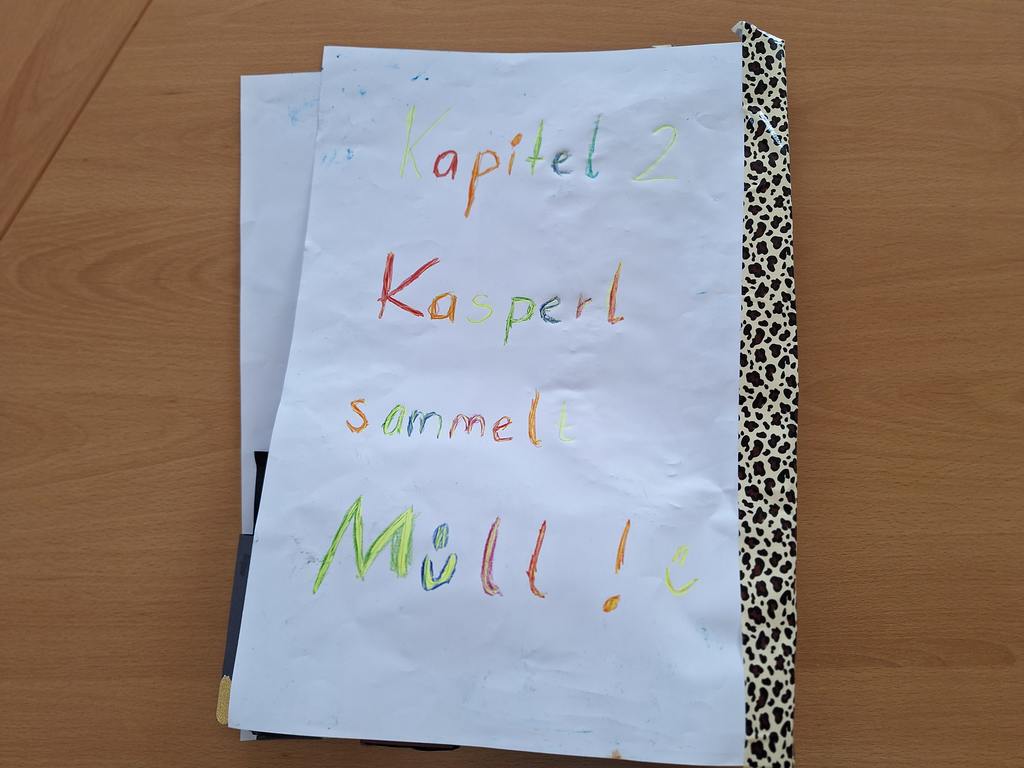 Kapitel 2
Kasperl
sammelt
Müll!